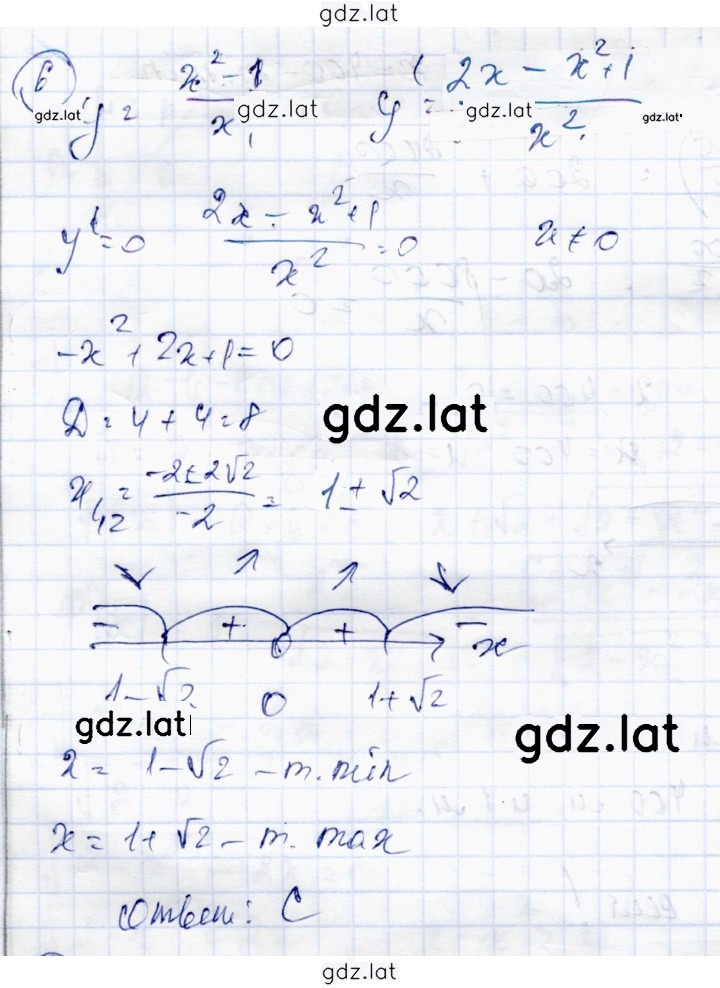 gdz.lat
6 y = (x² - 1)/x, y' = (2x - x² + 1)/x²
gdz.lat gdz.lat gdz.lat gdz.lat
y' = 0 (2x - x² + 1)/x² = 0 x ≠ 0
-x² + 2x + 1 = 0
D = 4 + 4 = 8
gdz.lat
x₁,₂ = (-2 ± 2√2)/-2 = 1 ± √2
↘ ↗ ↗ ↘
- + + - x
1 - √2 0 1 + √2
gdz.lat gdz.lat
x = 1 - √2 - m. min
x = 1 + √2 - m. max
Ответ: C
gdz.lat